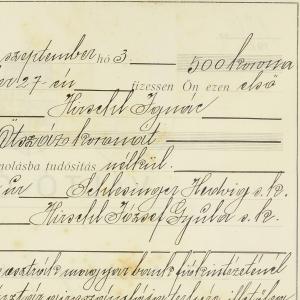 szeptember hó 3 500 korona
27-én fizessen Ön ezen első
Hirschl Ignác
Ötszáz koronát
molásba tudósítás nélkül.
úr Schlesinger Hedvig s. k.
Hirschl József Gyula s. k.
osztrák magyar bank fiókintézeténél